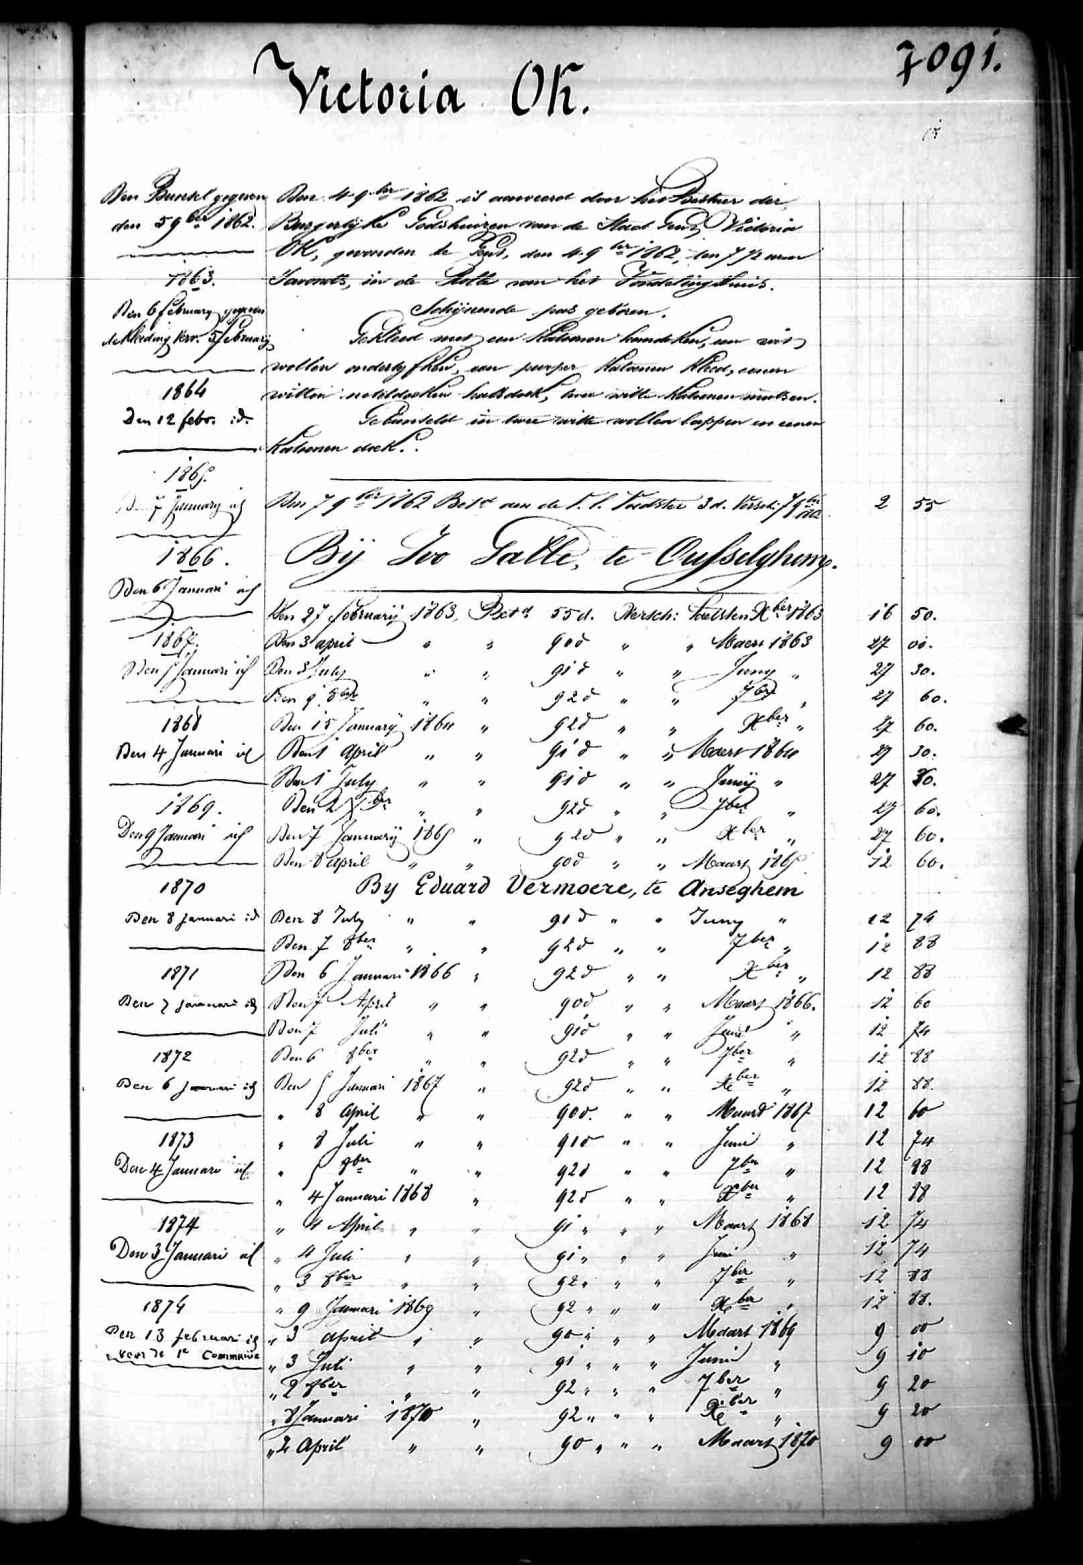 7091.
Victoria OK.
Den Bunsel gegeven
den 5 9ber 1862.
1863.
Den 6 february gegeven
de kleeding verv. 5 february
1864
Den 12 febr. id.
1865.
Den 7 January id
1866.
Den 6 Januari id
1867.
Den 5 Januari id
1868
Den 4 Januari id
1869.
Den 9 Januari id
1870
Den 8 januari id
1871
Den 7 januari id
1872
Den 6 januari id
1873
Den 4 Januari id
1874
Den 3 Januari id
1875
Den 13 februari id
voor de 1e Communie
Den 4 9ber 1862 is aanveerd door het Bestuer der
Burgerlyke Godshuizen van de Stad Gend, Victoria
OK, gevonden te Gend, den 4 9ber 1862, ten 7 uren
Savonds, in de Rolle van het Vondelinghuis.
Schijnende pas geboren.
Gekleed met een katoenen hemdeken, een wit
wollen onderlyfken, een purper katoenen kleed, eenen
witten neteldoeken halsdoek, twee witte katoenen mutsen.
Gebunseld in twee witte wollen lappen en eenen
katoenen doek.
Den 7 9ber 1862 Betd aan de Voedster 3 d. Versch: 7 9ber 1862 2 55
Bij Ivo Galle, te Oysselghem.
Den 27 februarij 1863, Betd 55 d. Versch: laetsten Xber 1863 16 50.
Den 3 april " " 90 d " " Maert 1863 27 00.
Den 3 July " " 91 d " " Juny " 27 30.
Den 9 8ber " " 92 d " " 7ber " 27 60.
Den 15 Januarij 1864 " 92 d " " Xber " 27 60.
Den 1 april " " 91 d " " Maert 1864 27 30.
Den 1 July " " 91 d " " Junij " 27 30.
Den 2 8ber " " 92 d " " 7ber " 27 60.
Den 7 Januarij 1865 " 92 d " " Xber " 27 60.
Den 8 april " " 90 d " " Maart 1865 12 60.
By Eduard Vermoere, te Anseghem
Den 8 July " " 91 d " " Juny " 12 74
Den 7 8ber " " 92 d " " 7ber " 12 88
Den 6 Januari 1866 " 92 d " " Xber " 12 88
Den 7 April " " 90 d " " Maart 1866. 12 60
Den 7 Juli " " 91 d " " Juni " 12 74
Den 6 8ber " " 92 d " " 7ber " 12 88
Den 5 Januari 1867 " 92 d " " Xber " 12 88.
" 8 April " " 90 d. " " Maart 1867 12 60
" 8 Juli " " 91 d " " Juni " 12 74
" 5 8ber " " 92 d " " 7ber " 12 88
" 4 Januari 1868 " 92 d " " Xber " 12 88
" 4 April " " 91 " " " Maart 1868 12 74
" 4 Juli " " 91 " " " Juni " 12 74
" 3 8ber " " 92 " " " 7ber " 12 88
" 9 Januari 1869 " 92 " " " Xber " 12 88.
" 3 april " " 90 " " " Maart 1869 9 00
" 3 Juli " " 91 " " " Juni " 9 10
" 2 8ber " " 92 " " " 7ber " 9 20
" 8 Januari 1870 " 92 " " " Xber " 9 20
" 2 April " " 90 " " " Maart 1870 9 00